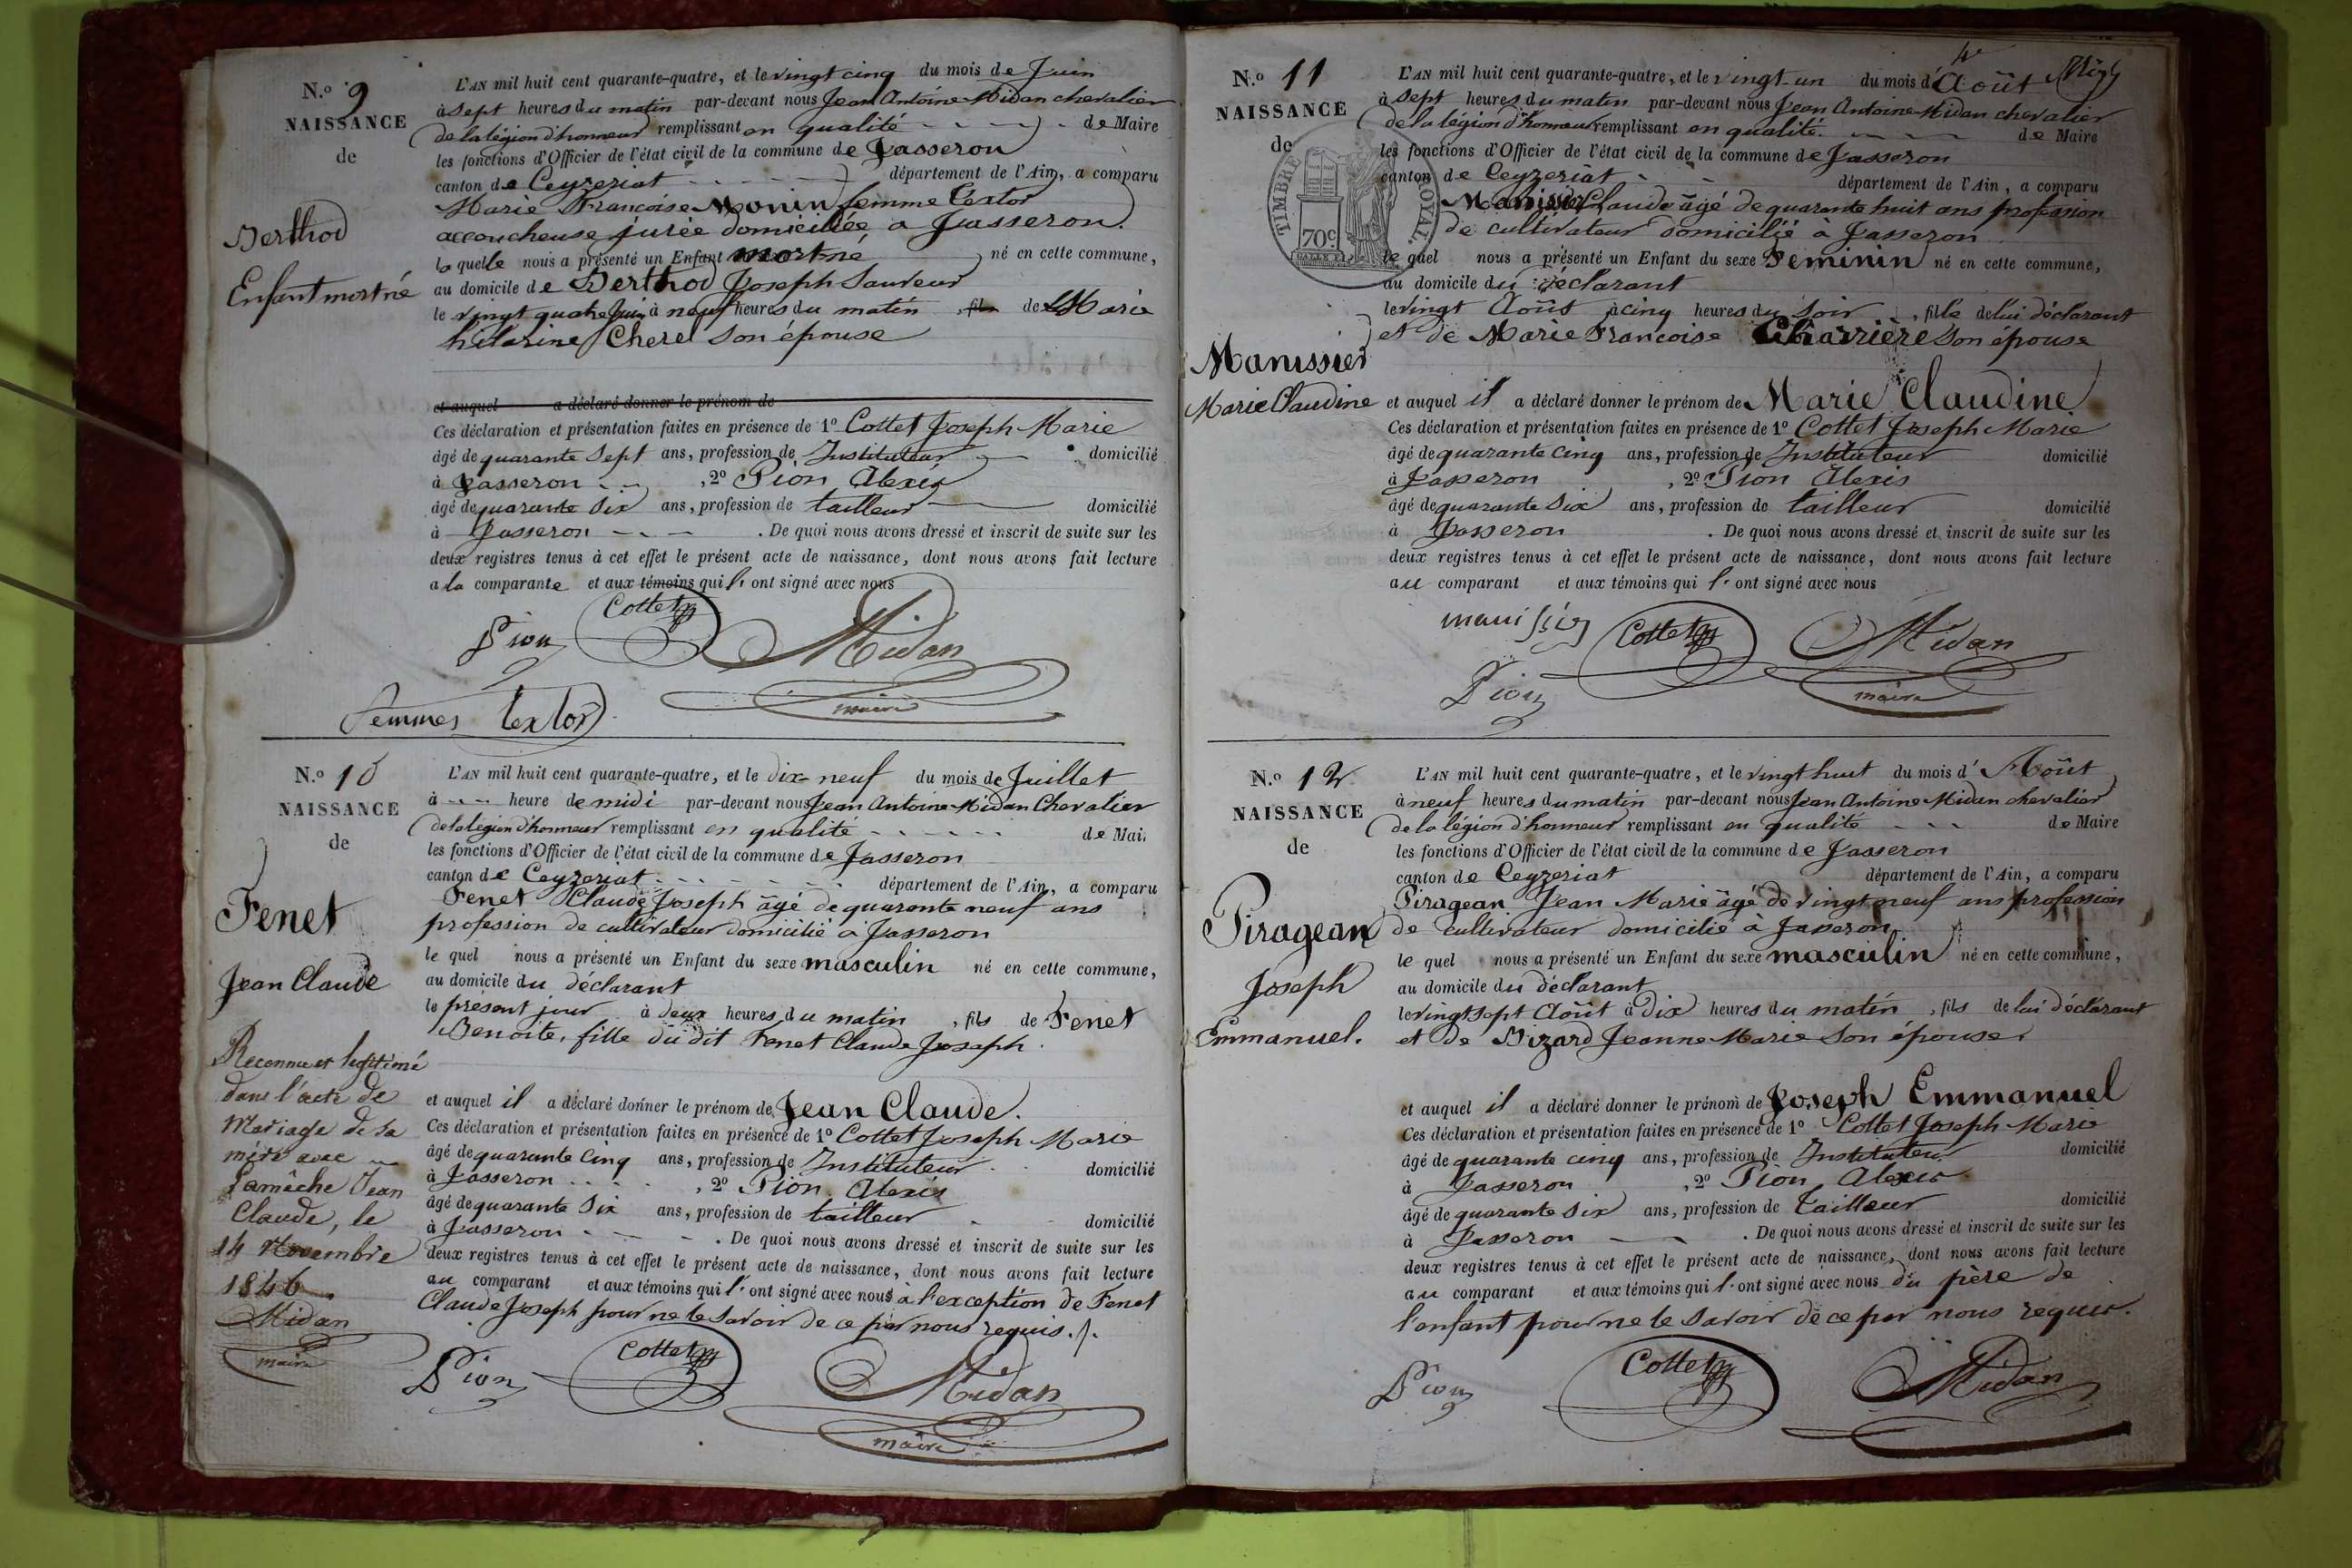 N.o 9
NAISSANCE
de
Berthod
Enfant mort né
L'AN mil huit cent quarante-quatre, et le vingt cinq du mois de Juin
à sept heures du matin par-devant nous Jean Antoine Midan chevalier
de la légion d'honneur remplissant en qualité de Maire
les fonctions d'Officier de l'état civil de la commune de Jasseron
canton de Ceyzeriat département de l'Ain, a comparu
Marie Françoise Monin femme Textor
accoucheuse jurée domiciliée a Jasseron.
la quelle nous a présenté un Enfant mort né né en cette commune,
au domicile de Berthod Joseph Sauveur
le vingt quatre Juin à neuf heures du matin , fils de Marie
hilarine Cherel son épouse
et auquel a déclaré donner le prénom de
Ces déclaration et présentation faites en présence de 1o Cottet Joseph Marie
âgé de quarante sept ans, profession de Instituteur domicilié
à Jasseron , 2o Pion Alexis
âgé de quarante six ans, profession de tailleur domicilié
à Jasseron . De quoi nous avons dressé et inscrit de suite sur les
deux registres tenus à cet effet le présent acte de naissance, dont nous avons fait lecture
a la comparante et aux témoins qui l' ont signé avec nous
Pion Cottet Midan
maire
femmes textor
N.o 10
NAISSANCE
de
Fenet
Jean Claude
Reconnu et legitimé
dans l'acte de
Mariage de sa
mère avec
Lamèche Jean
Claude, le
14 Novembre
1846.
Midan
maire
L'AN mil huit cent quarante-quatre, et le dix-neuf du mois de Juillet
à heure de midi par-devant nous Jean Antoine Midan Chevalier
de la legion d'honneur remplissant en qualité de Mai.
les fonctions d'Officier de l'état civil de la commune de Jasseron
canton de Ceyzeriat département de l'Ain, a comparu
Fenet Claude Joseph âgé de quarante neuf ans
profession de cultivateur domicilié a Jasseron
le quel nous a présenté un Enfant du sexe masculin né en cette commune,
au domicile du déclarant
le présent jour à deux heures du matin , fils de Fenet
Benoite, fille du dit Fenet Claude Joseph.
et auquel il a déclaré donner le prénom de Jean Claude.
Ces déclaration et présentation faites en présence de 1o Cottet Joseph Marie
âgé de quarante cinq ans, profession de Instituteur domicilié
à Jasseron , 2o Pion Alexis
âgé de quarante six ans, profession de tailleur domicilié
à Jasseron . De quoi nous avons dressé et inscrit de suite sur les
deux registres tenus à cet effet le présent acte de naissance, dont nous avons fait lecture
au comparant et aux témoins qui l' ont signé avec nous à l'exception de Fenet
Claude Joseph pour ne le savoir de ce par nous requis./.
Pion Cottet Midan
maire
N.o 11
NAISSANCE
de
TIMBRE ROYAL.
70c
Manissier
Marie Claudine
L'AN mil huit cent quarante-quatre, et le vingt-un du mois d'Août
à sept heures du matin par-devant nous Jean Antoine Midan chevalier
de la légion d'honneur remplissant en qualité de Maire
les fonctions d'Officier de l'état civil de la commune de Jasseron
canton de Ceyzeriat département de l'Ain, a comparu
Manissier Claude âgé de quarante huit ans profession
de cultivateur domicilié à Jasseron
le quel nous a présenté un Enfant du sexe Feminin né en cette commune,
au domicile du déclarant
le vingt Août à cinq heures du soir , fille de lui déclarant
et de Marie Françoise Charrière son épouse
et auquel il a déclaré donner le prénom de Marie Claudine
Ces déclaration et présentation faites en présence de 1o Cottet Joseph Marie
âgé de quarante cinq ans, profession de Instituteur domicilié
à Jasseron , 2o Pion Alexis
âgé de quarante six ans, profession de tailleur domicilié
à Jasseron . De quoi nous avons dressé et inscrit de suite sur les
deux registres tenus à cet effet le présent acte de naissance, dont nous avons fait lecture
au comparant et aux témoins qui l' ont signé avec nous
manissier Cottet Midan
Pion maire
N.o 12
NAISSANCE
de
Piragean
Joseph
Emmanuel.
L'AN mil huit cent quarante-quatre, et le vingt huit du mois d'Août
à neuf heures du matin par-devant nous Jean Antoine Midan chevalier
de la légion d'honneur remplissant en qualité de Maire
les fonctions d'Officier de l'état civil de la commune de Jasseron
canton de Ceyzeriat département de l'Ain, a comparu
Piragean Jean Marie âgé de vingt neuf ans profession
de cultivateur domicilié à Jasseron
le quel nous a présenté un Enfant du sexe masculin né en cette commune,
au domicile du déclarant
le vingt sept Août à dix heures du matin , fils de lui déclarant
et de Bizard Jeanne Marie son épouse
et auquel il a déclaré donner le prénom de Joseph Emmanuel
Ces déclaration et présentation faites en présence de 1o Cottet Joseph Marie
âgé de quarante cinq ans, profession de Instituteur domicilié
à Jasseron , 2o Pion Alexis
âgé de quarante six ans, profession de tailleur domicilié
à Jasseron . De quoi nous avons dressé et inscrit de suite sur les
deux registres tenus à cet effet le présent acte de naissance, dont nous avons fait lecture
au comparant et aux témoins qui l' ont signé avec nous du père de
l'enfant pour ne le savoir de ce par nous requis.
Pion Cottet Midan